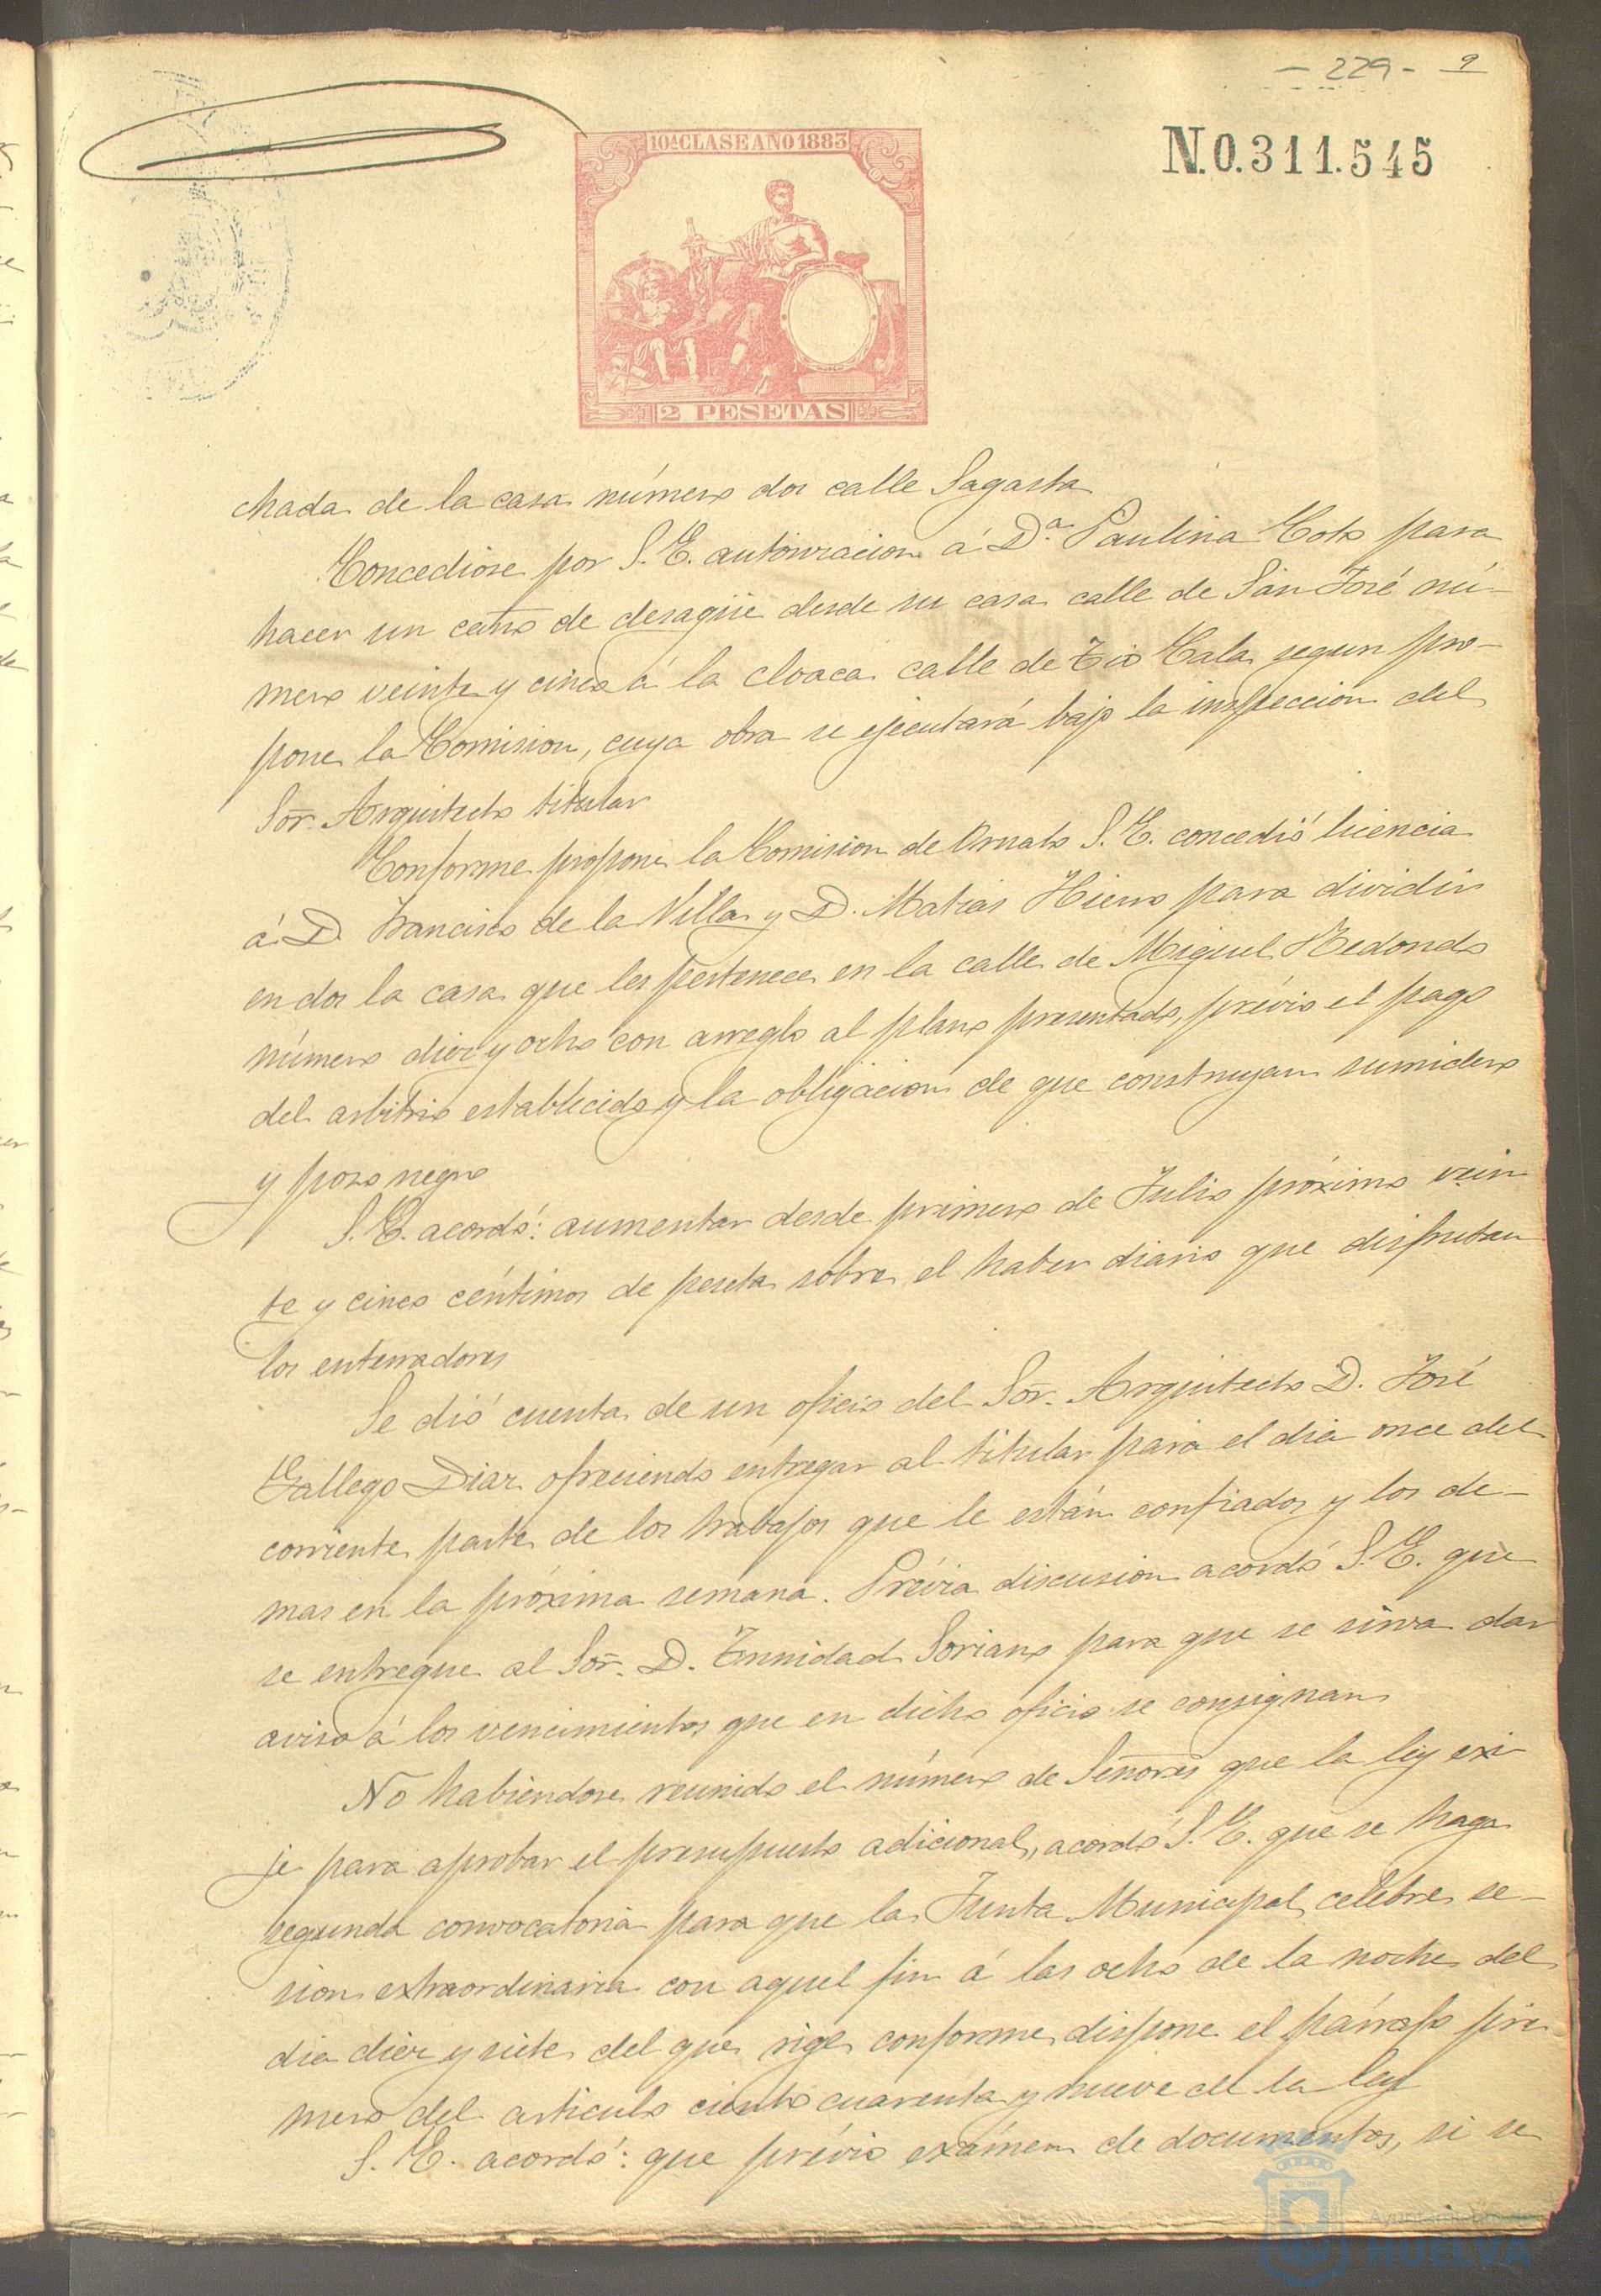 - 229 - 9
10ª CLASE AÑO 1883
N.0.311.545
2 PESETAS
chada de la casa número dos calle Sagasta
Concedióse por S. E. autorizacion á D.ª Paulina Coto para
hacer un caño de desagüe desde su casa calle de San José nú-
mero veinte y cinco á la cloaca calle de Tio Cala, segun pro-
pone la Comision, cuya obra se ejecutará bajo la inspeccion del
Sor. Arquitecto titular
Conforme propone la Comision de Ornato S. E. concedió licencia
á D. Francisco de la Villa y D. Matias Hierro para dividir
en dos la casa que les pertenece en la calle de Miguel Redondo
número diez y ocho con arreglo al plano presentado, prévio el pago
del arbitrio establecido y la obligacion de que construyan sumidero
y pozo negro
S. E. acordó: aumentar desde primero de Julio próximo vein
te y cinco céntimos de peseta sobre el haber diario que disfrutan
los enterradores
Se dió cuenta de un oficio del Sor. Arquitecto D. José
Gallego Diaz ofreciendo entregar al titular para el dia once del
corriente parte de los trabajos que le están confiados y los de-
mas en la próxima semana. Prévia discusion acordó S. E. que
se entregue al Sor. D. Trinidad Soriano para que se sirva dar
aviso á los vencimientos que en dicho oficio se consignan
No habiendose reunido el número de Señores que la ley exi-
je para aprobar el presupuesto adicional, acordó S. E. que se haga
segunda convocatoria para que la Junta Municipal celebre se-
sion extraordinaria con aquel fin á las ocho de la noche del
dia diez y siete del que rige conforme dispone el párrafo pri
mero del articulo ciento cuarenta y nueve de la ley
S. E. acordó: que prévio exámen de documentos, si se
Ayuntamiento de
HUELVA